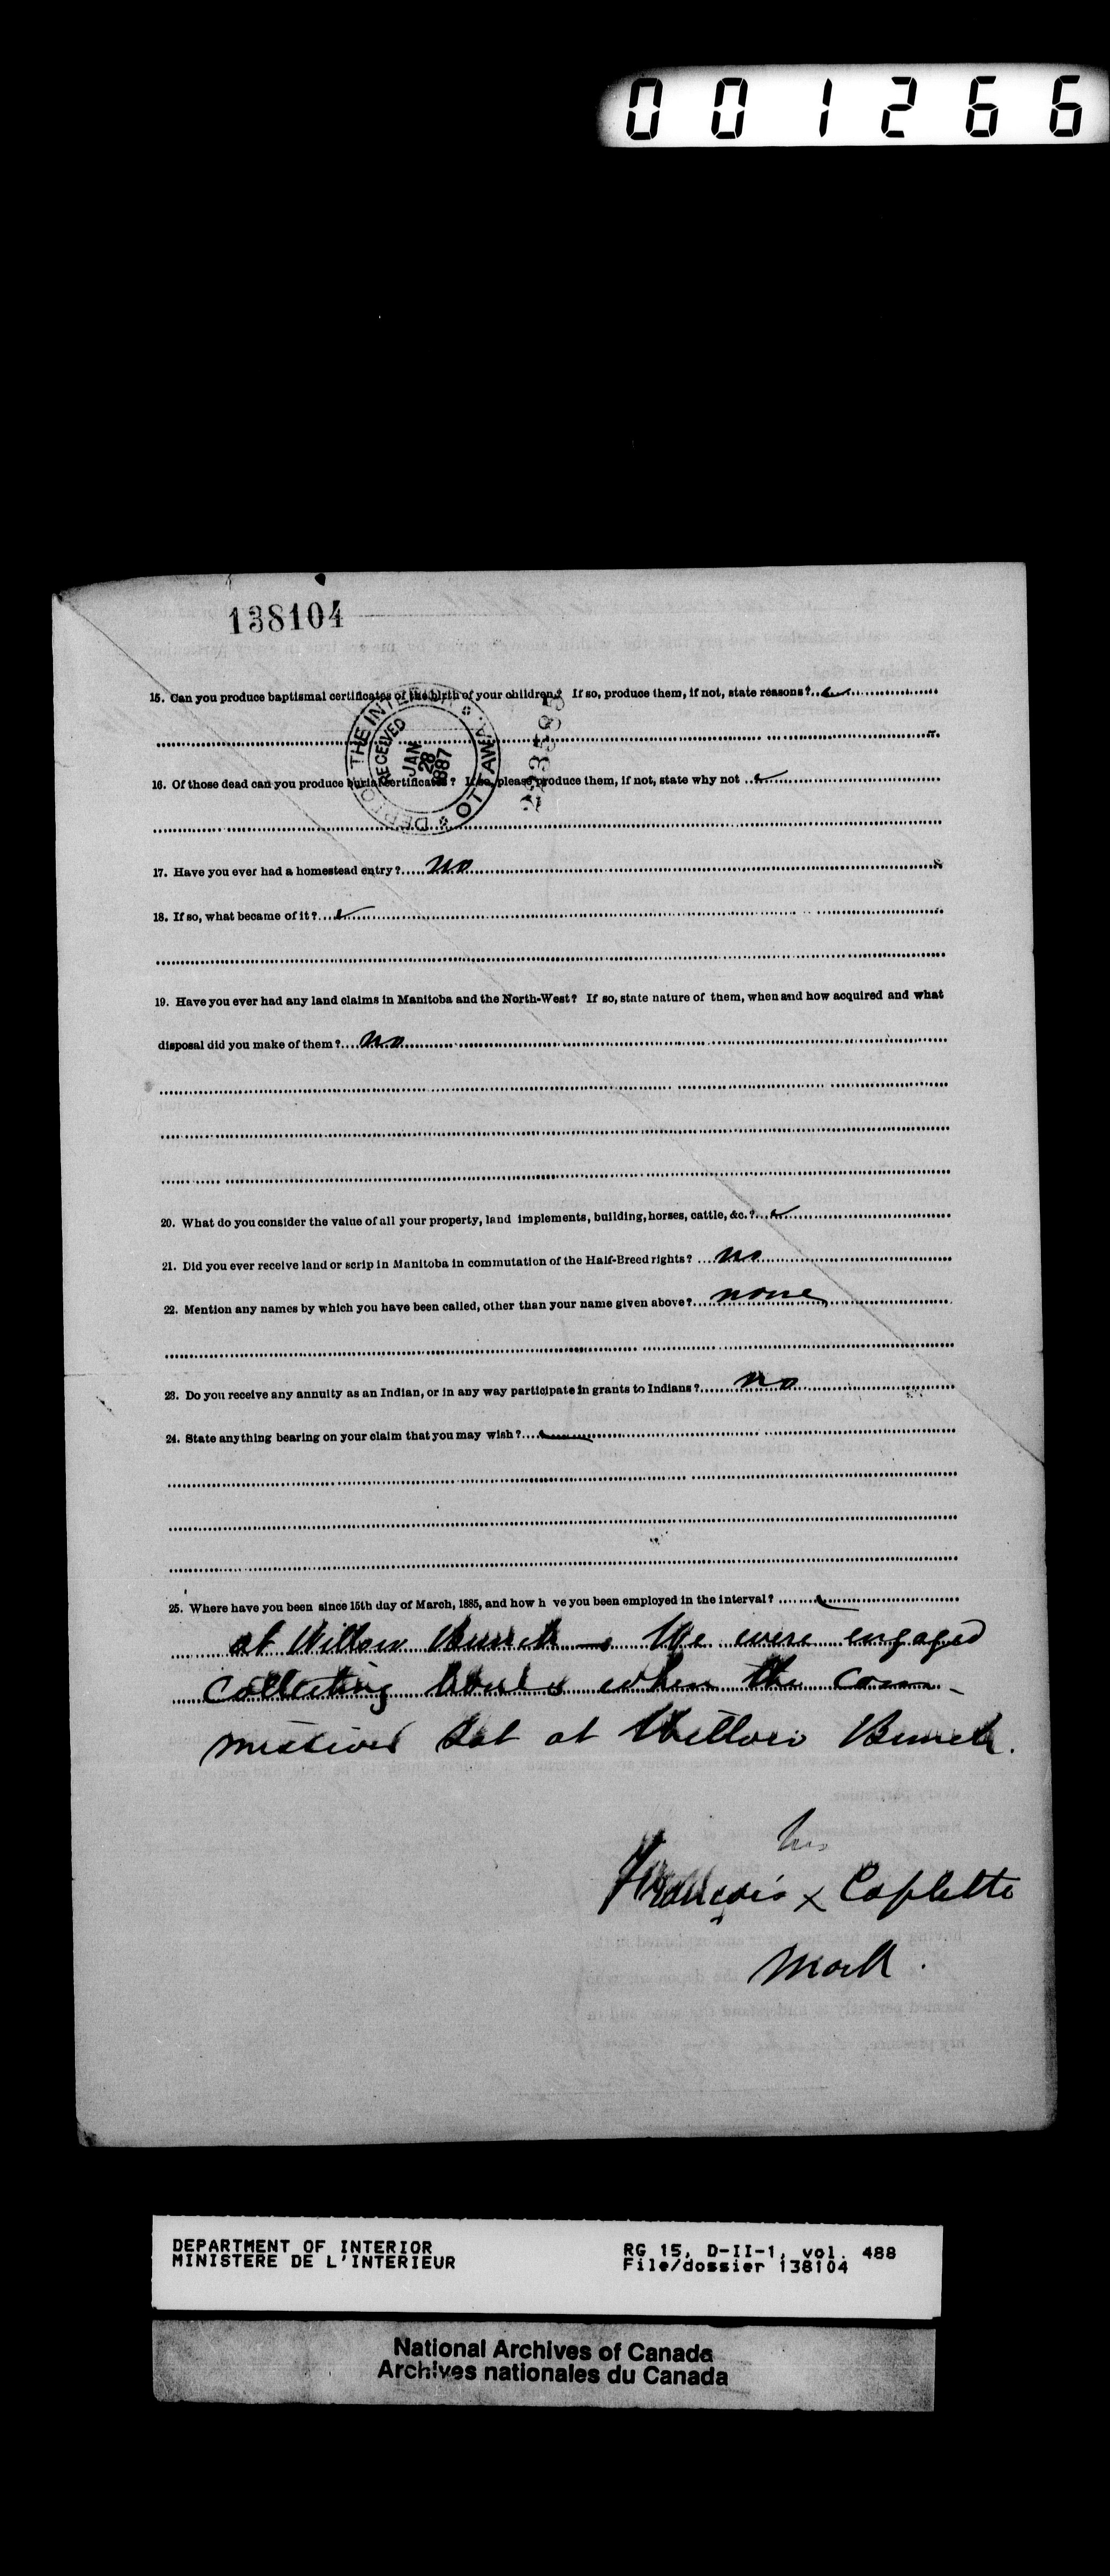 001266
138104
15. Can you produce baptismal certificates of the birth of your children? If so, produce them, if not, state reasons?
DEPT OF THE INTERIOR OTTAWA
RECEIVED
JAN
28
1887
16. Of those dead can you produce burial certificates? If so, please produce them, if not, state why not
17. Have you ever had a homestead entry? no
18. If so, what became of it?
19. Have you ever had any land claims in Manitoba and the North-West? If so, state nature of them, when and how acquired and what
disposal did you make of them? no
20. What do you consider the value of all your property, land implements, building, horses, cattle, &c.?
21. Did you ever receive land or scrip in Manitoba in commutation of the Half-Breed rights? no
22. Mention any names by which you have been called, other than your name given above? none
23. Do you receive any annuity as an Indian, or in any way participate in grants to Indians? no
24. State anything bearing on your claim that you may wish?
25. Where have you been since 15th day of March, 1885, and how h ve you been employed in the interval?
at Willow Bunch - We were engaged
collecting when the com-
mission sat at Willow Bunch.
his
François x Caplette
mark.
DEPARTMENT OF INTERIOR
MINISTERE DE L'INTERIEUR
RG 15, D-II-1, vol. 488
File/dossier 138104
National Archives of Canada
Archives nationales du Canada